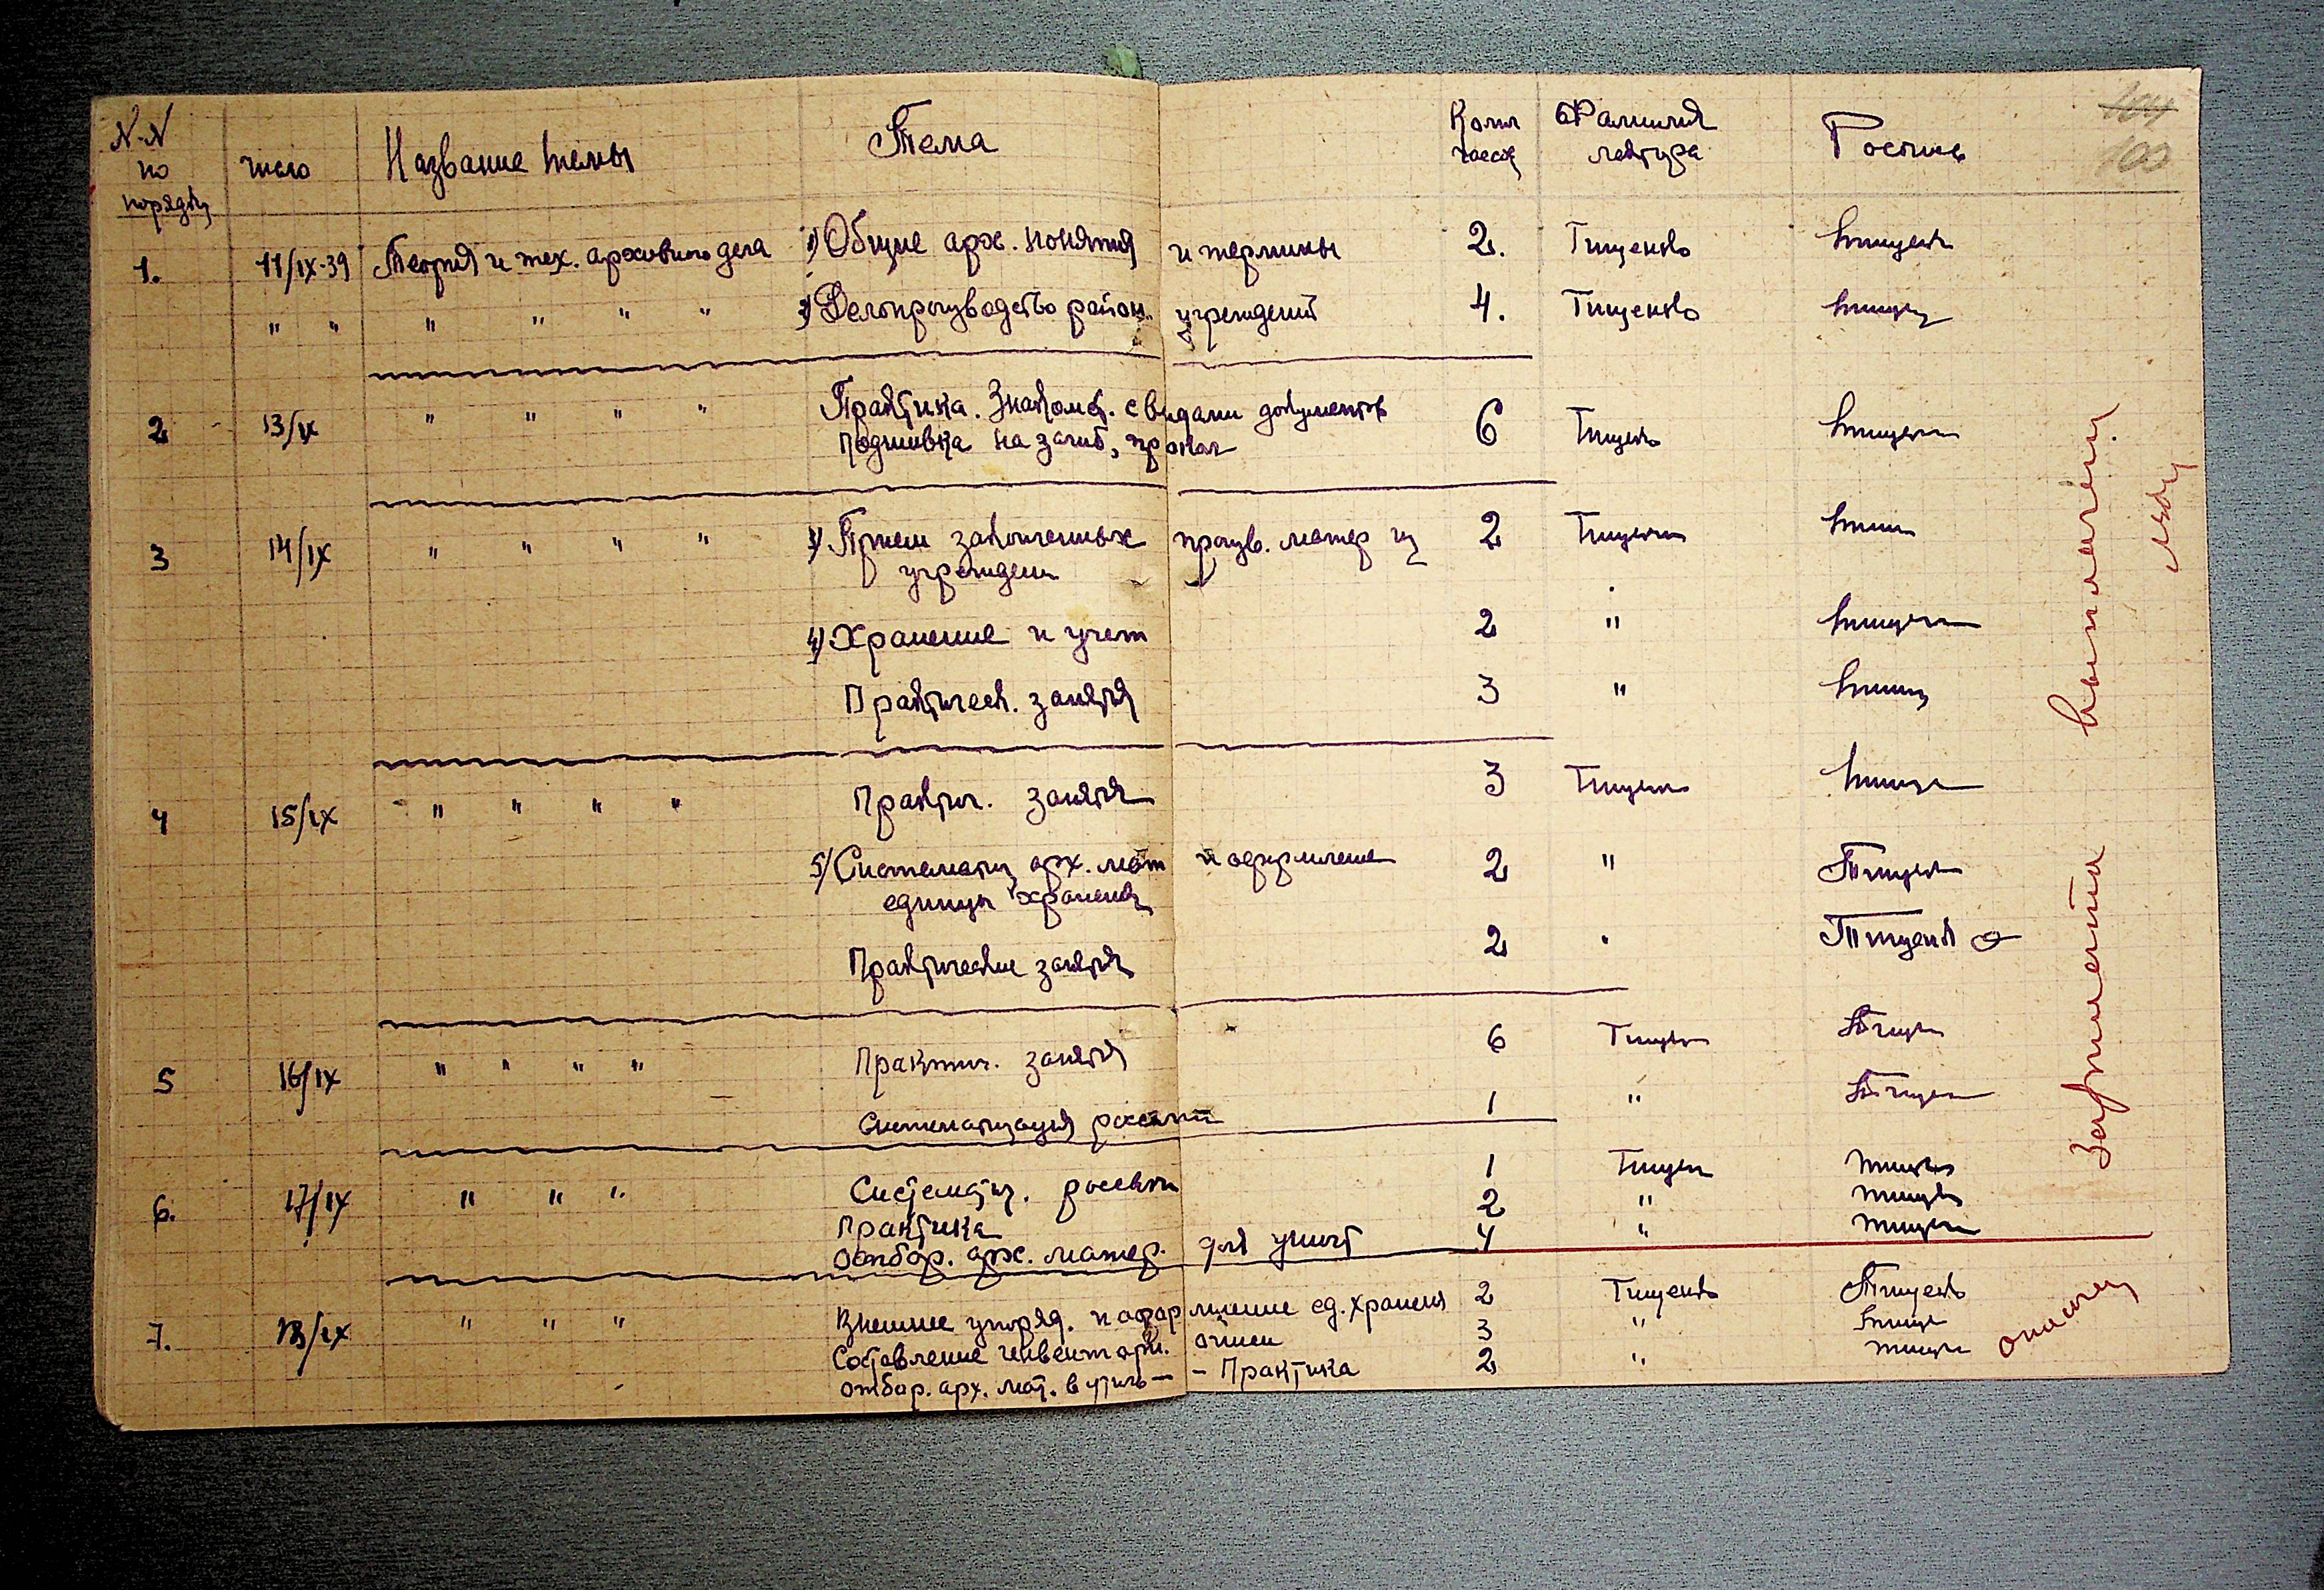 N-N по порядку число Название темы Тема Колич часов Фамилия лектора Роспись
104
100
1. 11/IX-39 Теория и тех. архивного дела 1) Общие арх. понятия и термины 2. Тищенко
" " " " " " 2) Делопроизводство район. учреждений 4. Тищенко
2 13/IX " " " " Практика. Знакомст. с видами документов 6 Тищенко
Подшивка на загиб, прокол
3 14/IX " " " " 3) Прием законченных произв. матер из 2 Тищенко
учрежден
4) Хранение и учет 2 "
Практическ. занятия 3 "
4 15/IX " " " " Практич. занятия 3 Тищенко
5) Систематиз арх. мат и оформление 2 "
единицы хранения
Практические занятия 2 " Тищенко
5 16/IX " " " " Практич. занятия 6 Тищенко
Систематизация россыпи 1 "
6. 17/IX " " " Систематиз. россыпи 1 Тищен
Практика 2 "
отбор. арх. матер. для уничт 4 "
7. 18/IX " " " Внешнее упоряд. и оформление ед. хранения 2 Тищенко
Составление инвентарн. описи 3 "
отбор. арх. мат. в утиль - - Практика 2 "